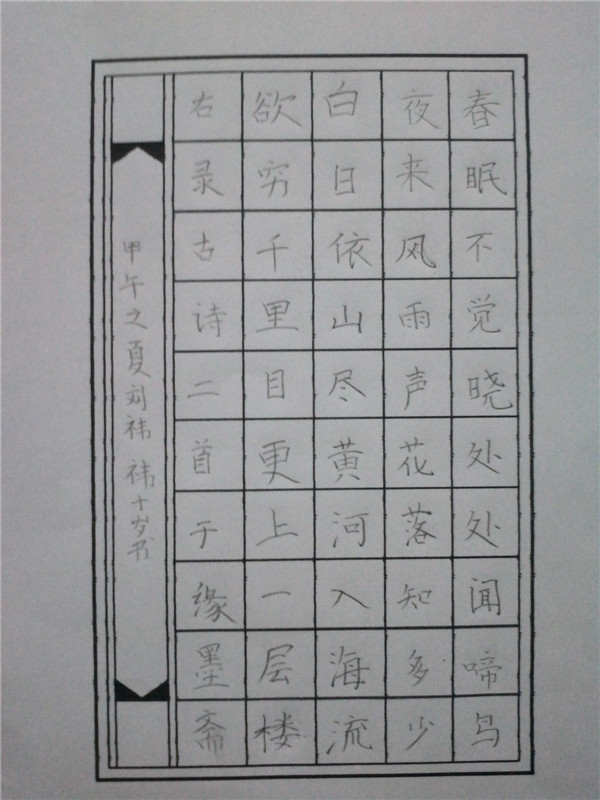 春眠不觉晓处处闻啼鸟
夜来风雨声花落知多少
白日依山尽黄河入海流
欲穷千里目更上一层楼
右录古诗二首于缘墨斋
甲午之夏刘祎祎十岁书